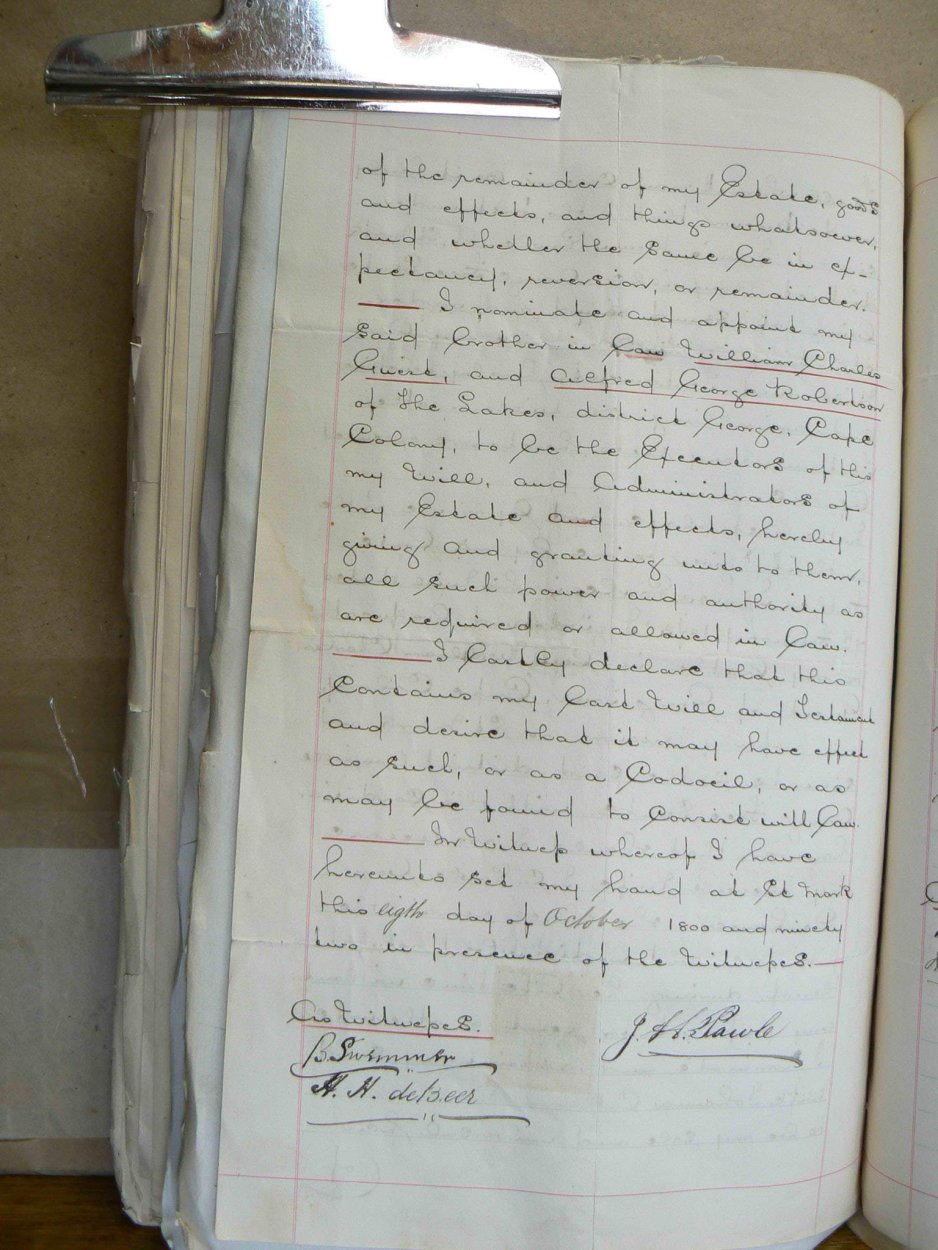 of the remainder of my Estate, goods
and effects, and things whatsoever,
and whether the same be in ex-
pectancy, reversion, or remainder.
I nominate and appoint my
said brother in Law William Charles
Guest, and Alfred George Robertson
of the Lakes, district George, Cape
Colony, to be the Executors of this
my Will, and Administrators of
my Estate and effects, hereby
giving and granting unto them,
all such power and authority as
are required or allowed in Law.
I Lastly declare that this
contains my Last Will and Testament
and desire that it may have effect
as such, or as a Codocil, or as
may be found to Consist with Law.
In Witness whereof I have
hereunto set my hand at St Mark
this eigth day of October 1800 and ninety
two in presence of the Witnesses.
As Witnesses.
B. Swemmer
H. H. de Beer